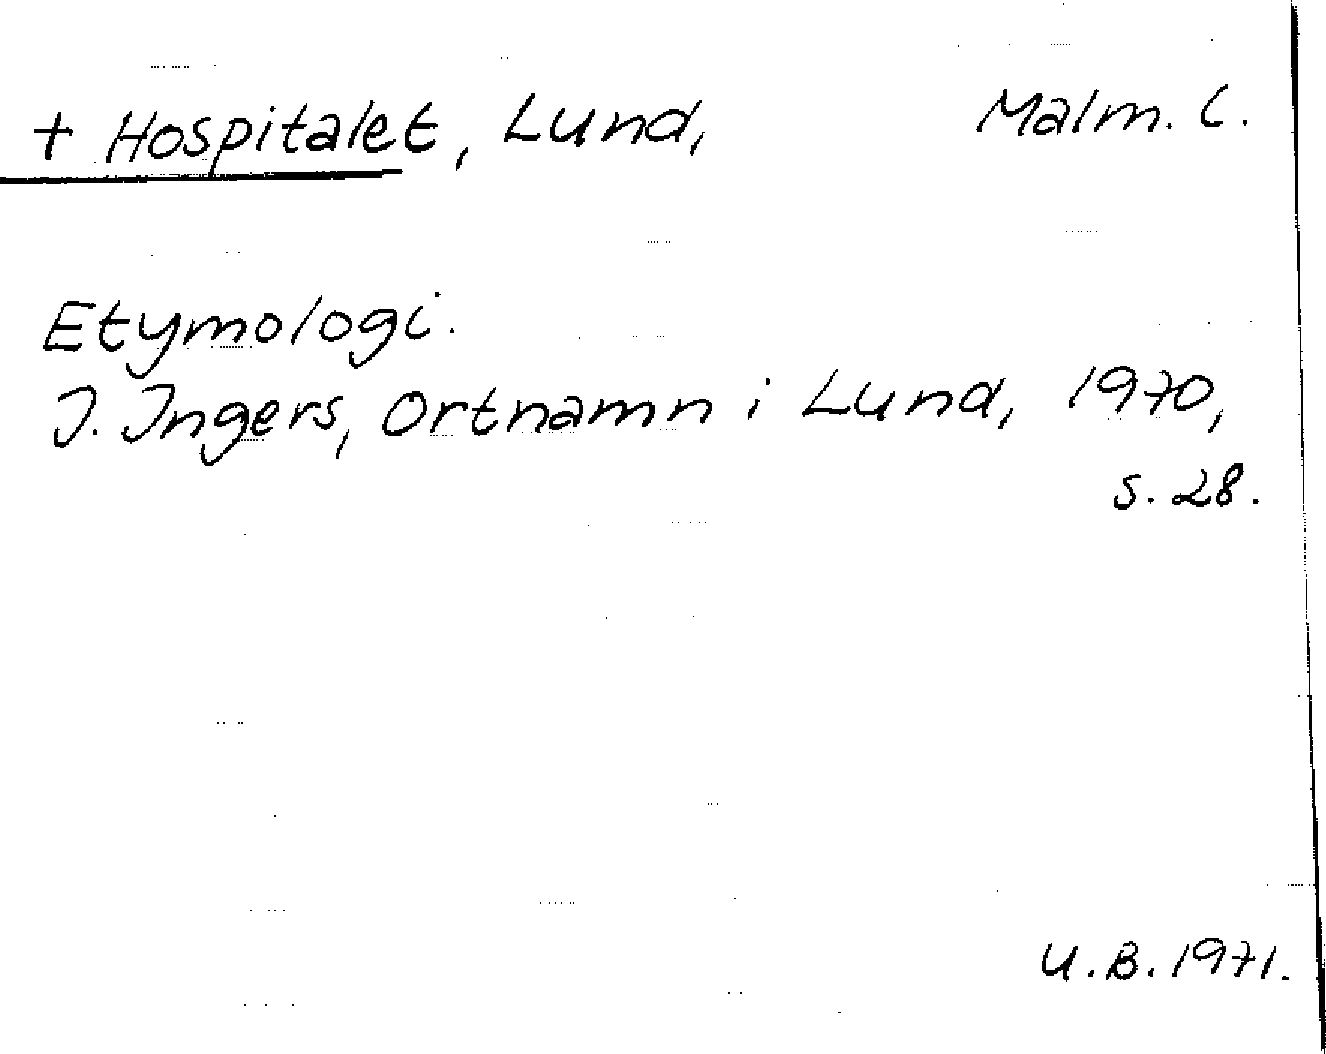 + Hospitalet, Lund, Malm. l.
Etymologi.
I. Ingers, Ortnamn i Lund, 1970,
s. 28.
U.B. 1971.